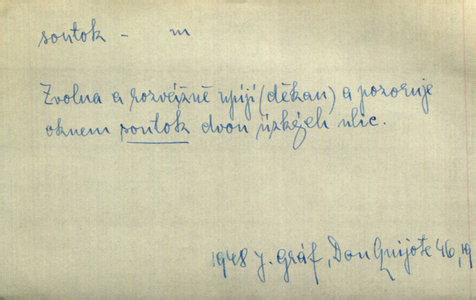 soutok - m
Zvolna a rozvážně upíjí (děkan) a pozoruje
oknem soutok dvou úzkých ulic.
1948 J. Gráf, Don Quijote 46,19